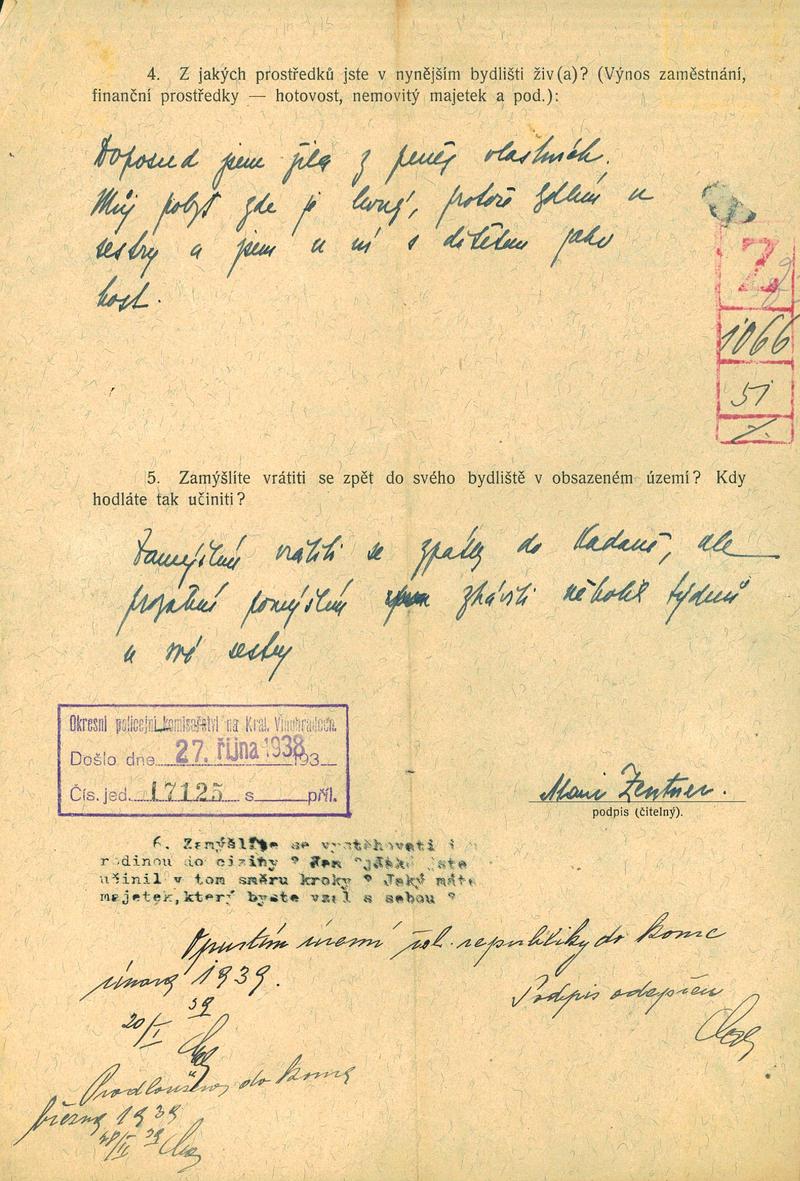 4. Z jakých prostředků jste v nynějším bydlišti živ(a)? (Výnos zaměstnání,
finanční prostředky — hotovost, nemovitý majetek a pod.):
Doposud jsem žila z peněz vlastních.
Můj pobyt zde je levný, protože bydlím u
sestry a jsem u ní s dítětem jako
host.
Z
1066
51
5. Zamýšlíte vrátiti se zpět do svého bydliště v obsazeném území? Kdy
hodláte tak učiniti?
Zamýšlím vrátiti se zpátky do Kadaně, ale
prozatím pomýšlím ztráviti několik týdnů
u své sestry
Okresní policejní komisařství na Král. Vinohradech.
Došlo dne 27. října 1938 193
Čís. jed. 17125 s příl.
podpis (čitelný).
Zentner.
6. Zamýšlíte se vystěhovati i
rodinou do ciziny ? Jak jste
učinil v tom směru kroky ? Jaký máte
majetek, který byste vzal s sebou ?
Opustím území čsl. republiky do konce
února 1939.
Podpis odepřen
20/I 39
Prodlouženo do konce
března 1939
28/II 39